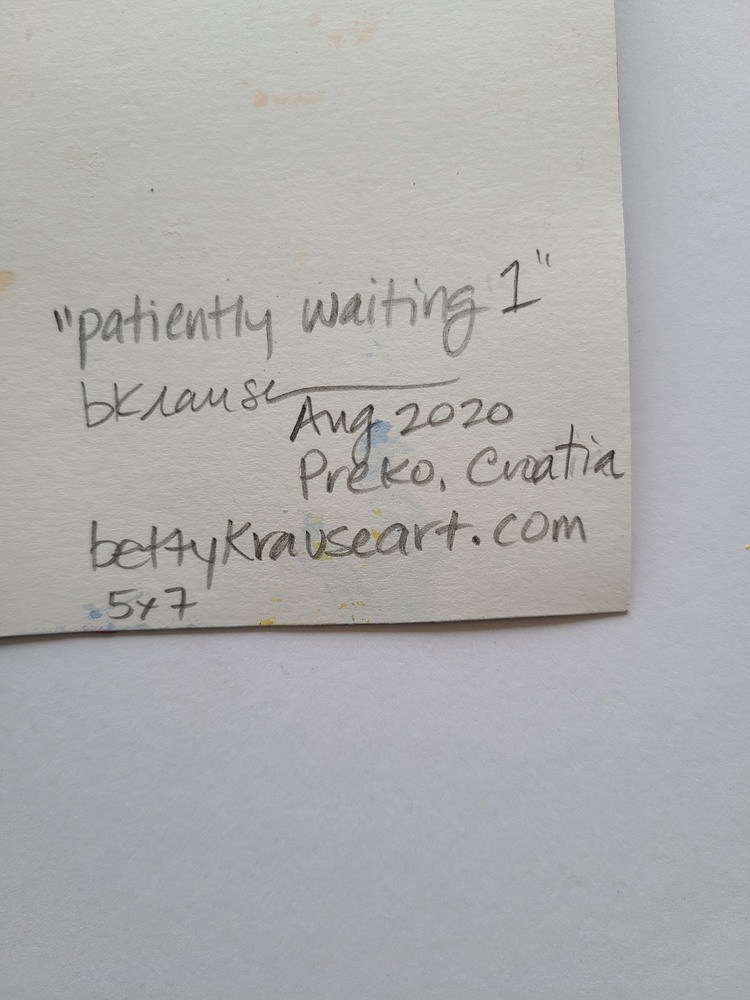 "patiently waiting 1"
bkrause
Aug 2020
Preko, Croatia
bettykrauseart.com
5x7